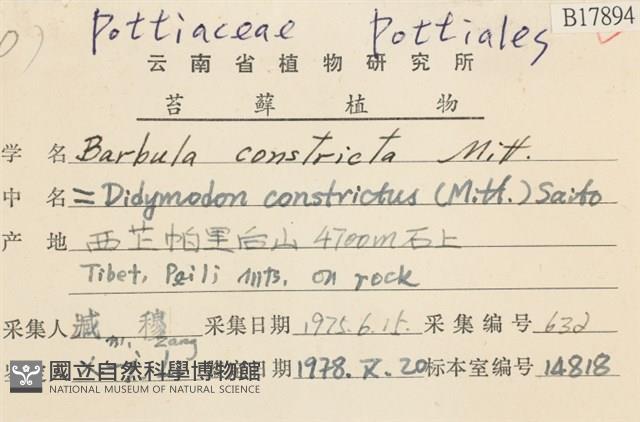 B17894
Pottiaceae Pottiales
云南省植物研究所
苔藓植物
学名 Barbula constricta Mitt.
中名 = Didymodon constrictus (Mitt.) Saito
产地 西芷帕里后山 4700m石上
Tibet, Peili mts, on rock
采集人 臧穆 采集日期 1975.6.15. 采集编号 632
m. Zang
日期 1978.X.20 标本室编号 14818
國立自然科學博物館
NATIONAL MUSEUM OF NATURAL SCIENCE